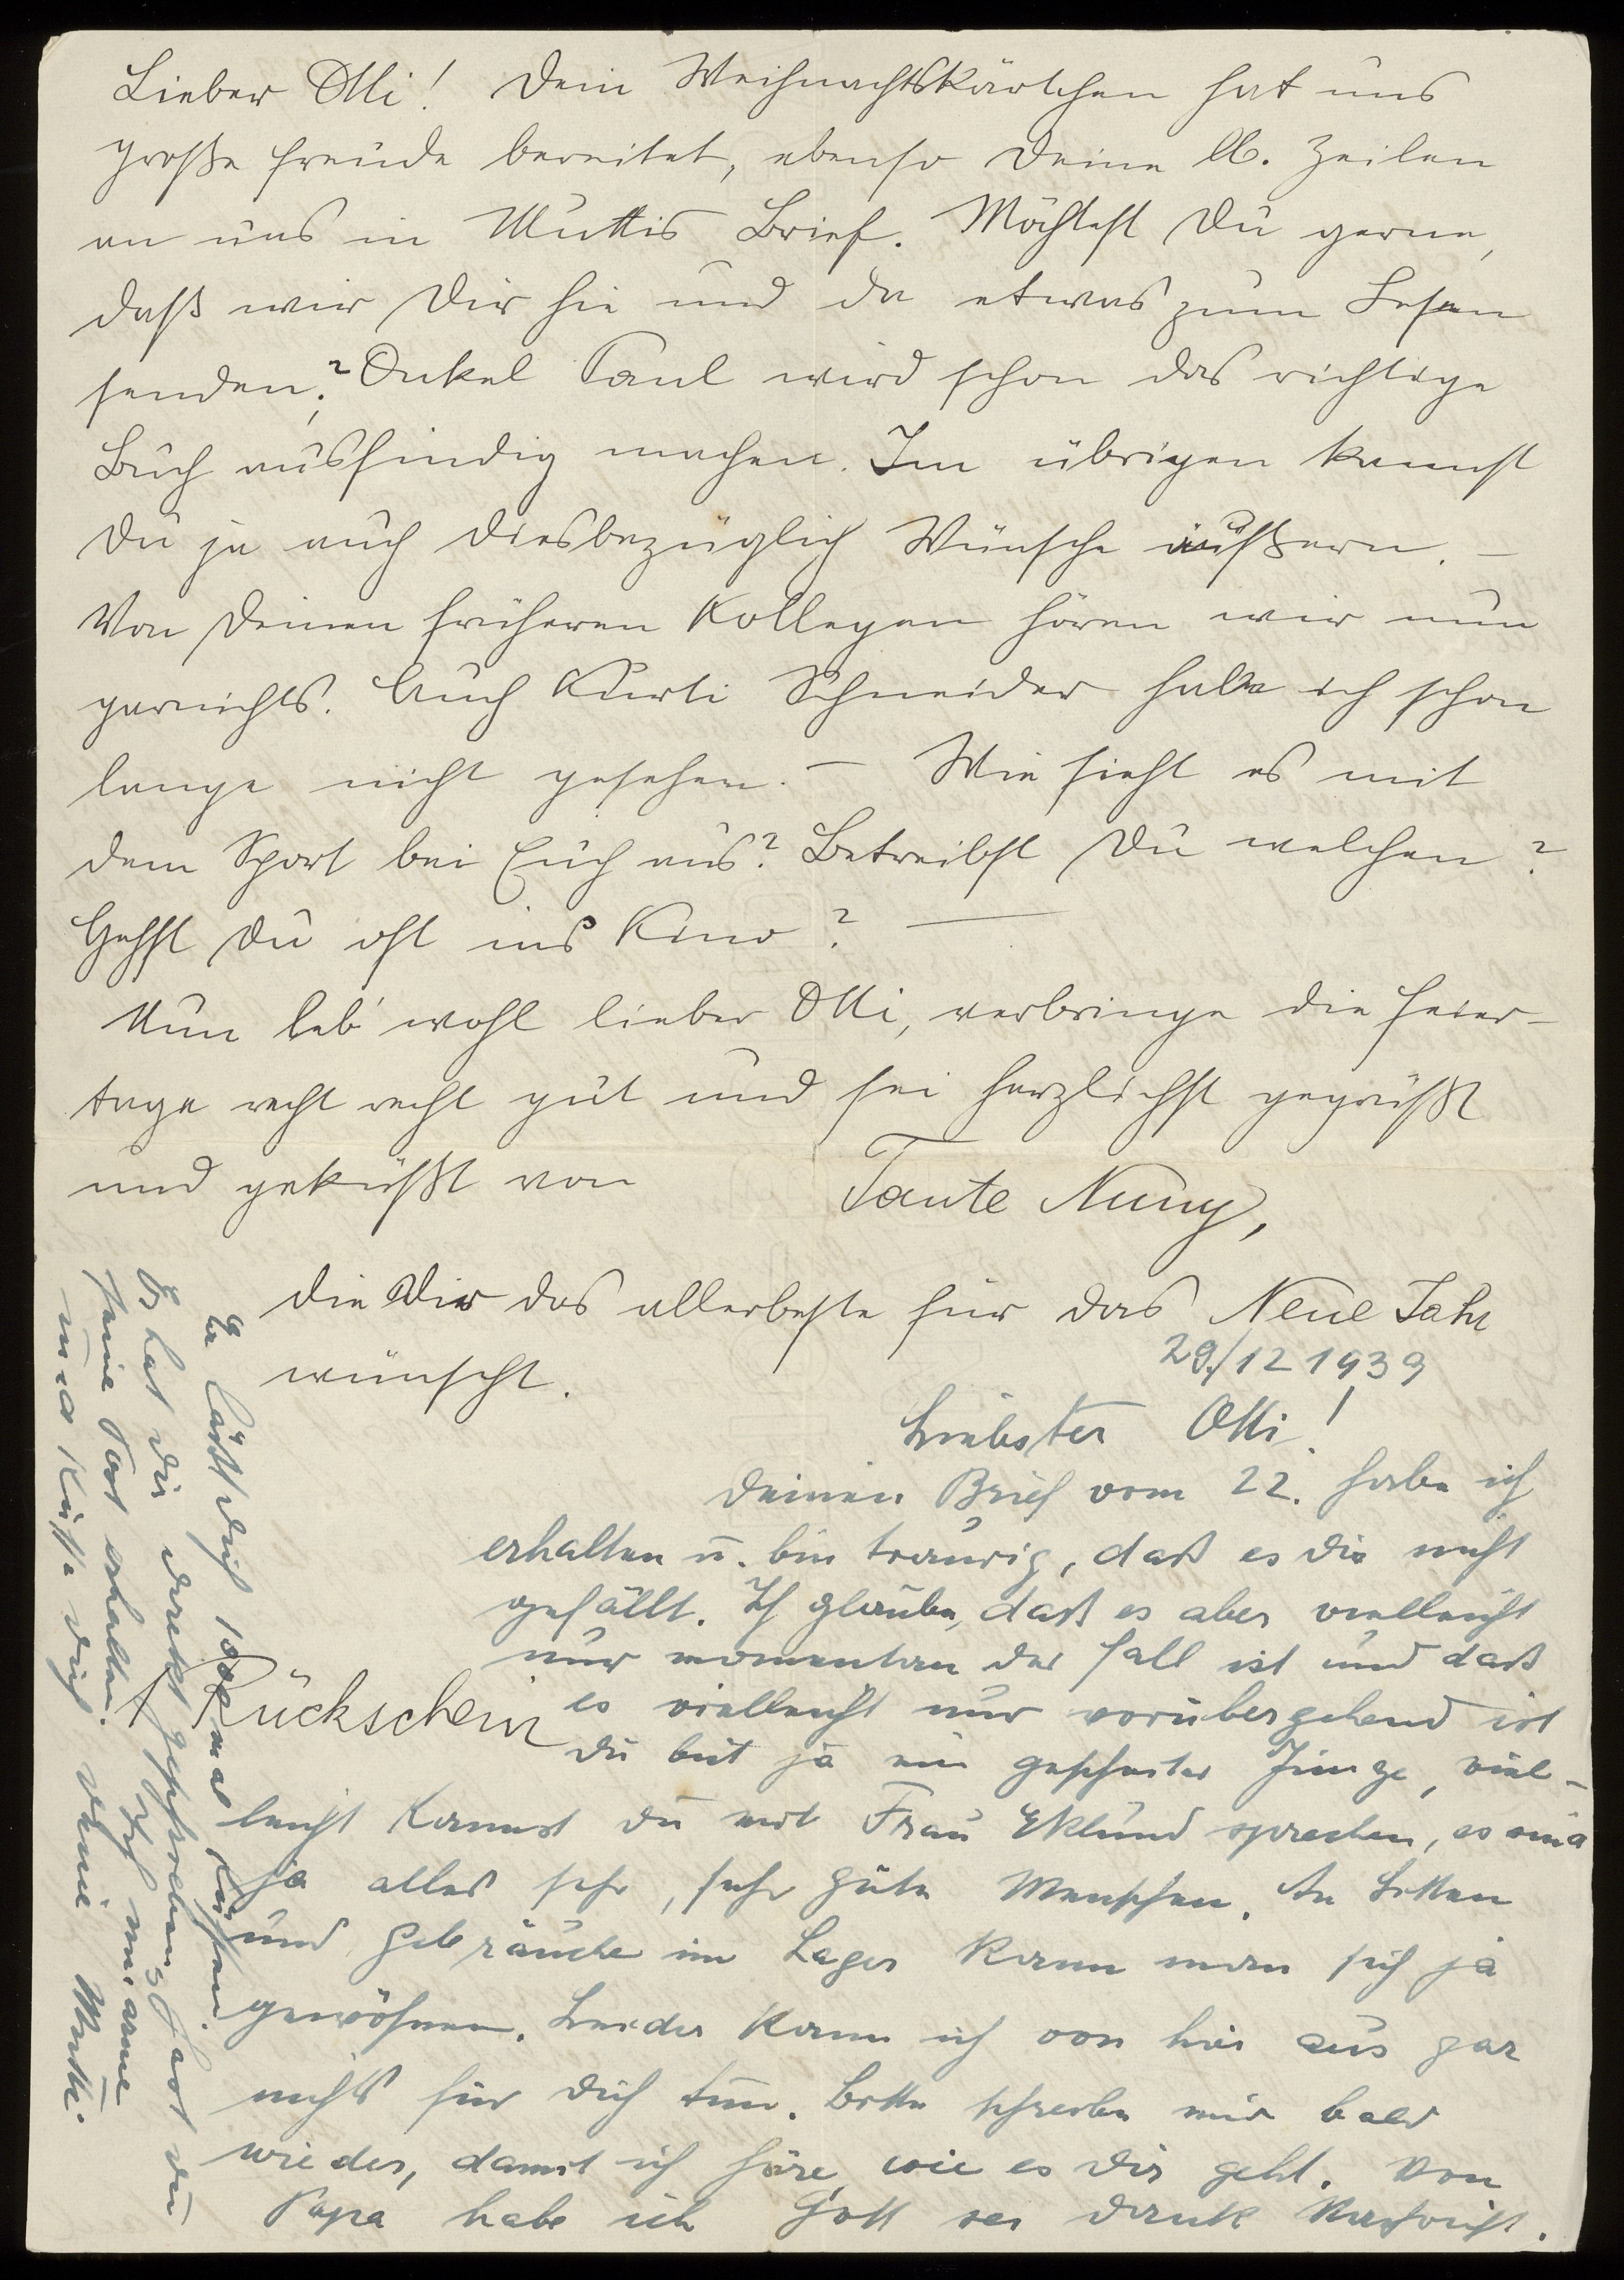 Lieber Otti! Dein Weihnachtskärtchen hat uns
große Freude bereitet, ebenso Deine lb. Zeilen
an uns in Muttis Brief. Möchtest Du gerne,
daß wir Dir hie und da etwas zum Lesen
senden? Onkel Paul wird schon das richtige
Buch ausfindig machen. Im übrigen kannst
Du ja auch diesbezüglich Wünsche äußern. –
Von Deinen früheren Kollegen hören wir nun
garnichts. Auch Kurti Schneider habe ich schon
lange nicht gesehen. – Wie sieht es mit
dem Sport bei Euch aus? Betreibst Du welchen?
Gehst Du oft ins Kino? —
Nun leb' wohl lieber Otti, verbringe die Feier-
tage recht recht gut und sei herzlichst gegrüßt
und geküßt von Tante Nuny,
die Dir das allerbeste für das Neue Jahr
wünscht.
29./12 1939
Liebster Otti!
Deinen Brief vom 22. habe ich
erhalten u. bin traurig, daß es Dir nicht
gefällt. Ich glaube, daß es aber vielleicht
nur momentan der Fall ist und daß
es vielleicht nur vorübergehend ist
Du bist ja ein gescheiter Junge, viel-
leicht kannst du mit Frau Eklund sprechen, es sind
ja alles sehr, sehr gute Menschen. An Sitten
und Gebräuche im Lager kann man sich ja
gewöhnen. Leider kann ich von hier aus gar
nichts für Dich tun. Bitte schreibe mir bald
wieder, damit ich höre, wie es Dir geht. Von
Papa habe ich Gott sei Dank Nachricht.
1 Rückschein
Er läßt Dich 1000 mal küssen.
Er hat Dir direkt geschrieben, hast Du
seine Post erhalten. Ich umarme
und küsse Dich Deine Mutti.